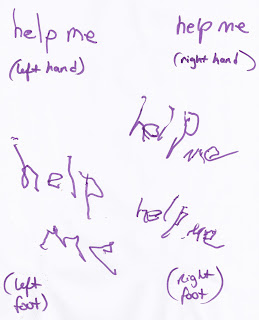 help me
(left hand)
help me
(right hand)
help
me
help
me
(left
foot)
help
me
(right
foot)